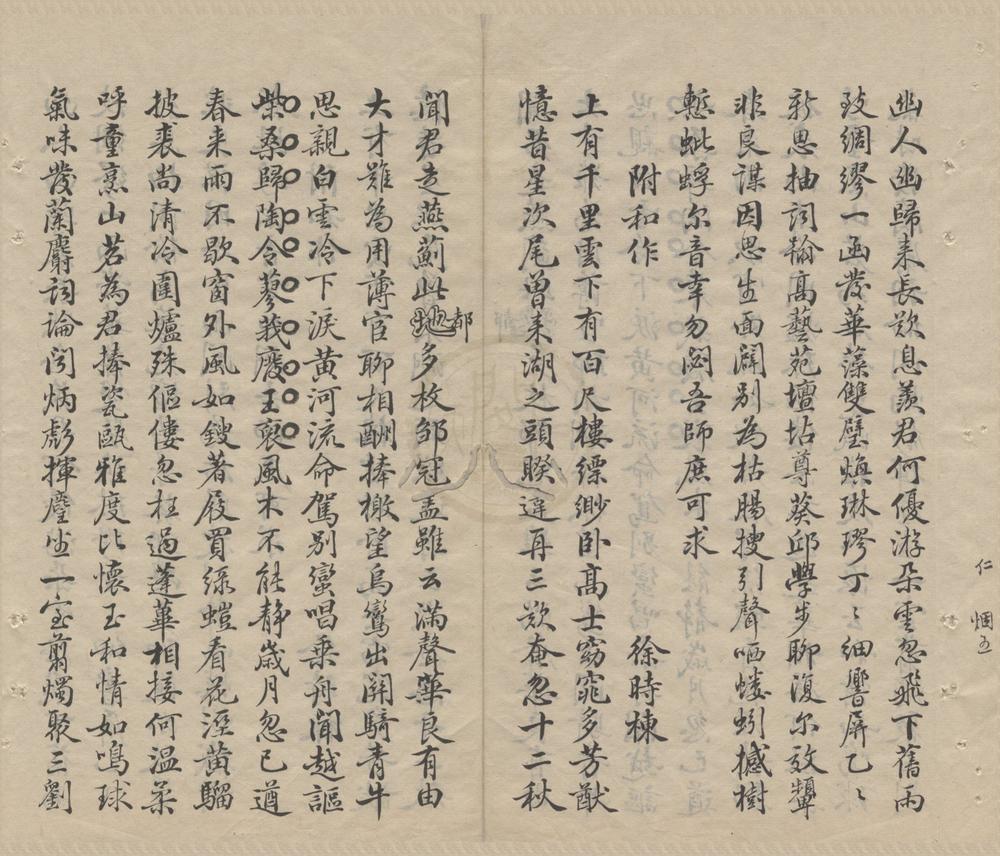 幽人幽歸來長歎息羨君何優游朵雲忽飛下舊雨
致綢繆一函發華藻雙璧煥琳璆丁〻細響屏乙〻
新思抽詞翰高藝苑壇坫尊葵邱學步聊復尔效顰
非良謀因思生面闢別為枯腸搜引聲哂螻蚓撼樹
慙蚍蜉尔音幸勿閟吾師庶可求
附和作　徐時棟
上有千里雲下有百尺樓縹緲臥高士窈窕多芳猷
憶昔星次尾曾來湖之頭睽違再三歎奄忽十二秋
聞君走燕薊此地都多枚鄒冠蓋雖云滿聲華良有由
大才難為用薄官聊相酬捧檄望烏鸞出關騎青牛
思親白雲冷下淚黃河流命駕別蠻唱乗舟聞越謳
柴桑歸陶令蓼莪廢王裒風木不能靜歲月忽已遒
春来雨不歇窗外風如鎪著屐買綠螘看花淫黃騮
披裘尚清冷圍爐殊傴僂忽枉過蓬蓽相接何温柔
呼童烹山茗為君捧瓷甌雅度比懷玉和情如鳴球
氣味發蘭麝詞論閎炳彪揮麈坐一室翦燭聚三劉
仁　烟五